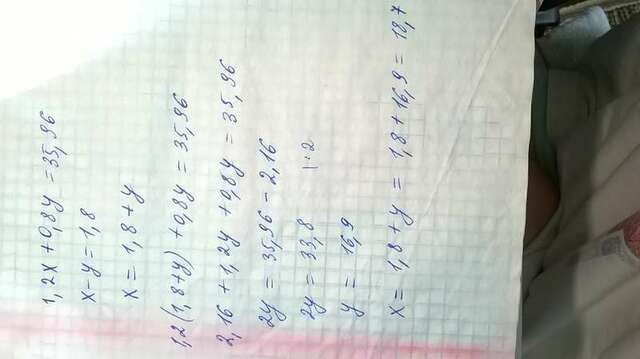 1,2x+0,8y =35,96
x-y=1,8
x=1,8+y
1,2(1,8+y) +0,8y =35,96
2,16 +1,2y +0,8y = 35,96
2y = 35,96 - 2,16
2y = 33,8 |:2
y = 16,9
x= 1,8+y = 1,8+16,9 = 18,7